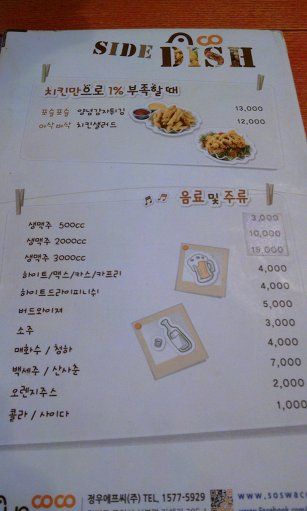 SIDE DISH
치킨만으로 1% 부족할 때
포슬포슬 양념감자튀김 13,000
아삭아삭 치킨샐러드 12,000
음료 및 주류
생맥주 500cc 3,000
생맥주 2000cc 10,000
생맥주 3000cc 15,000
하이트/맥스/카스/카프리 4,000
하이트드라이피니쉬 4,000
버드와이저 5,000
소주 3,000
매화수 / 청하 4,000
백세주 / 산사춘 7,000
오렌지주스 2,000
콜라 / 사이다 1,000
coco 정우에프씨(주) TEL. 1577-5929
www.soswaco
www.facebook.com